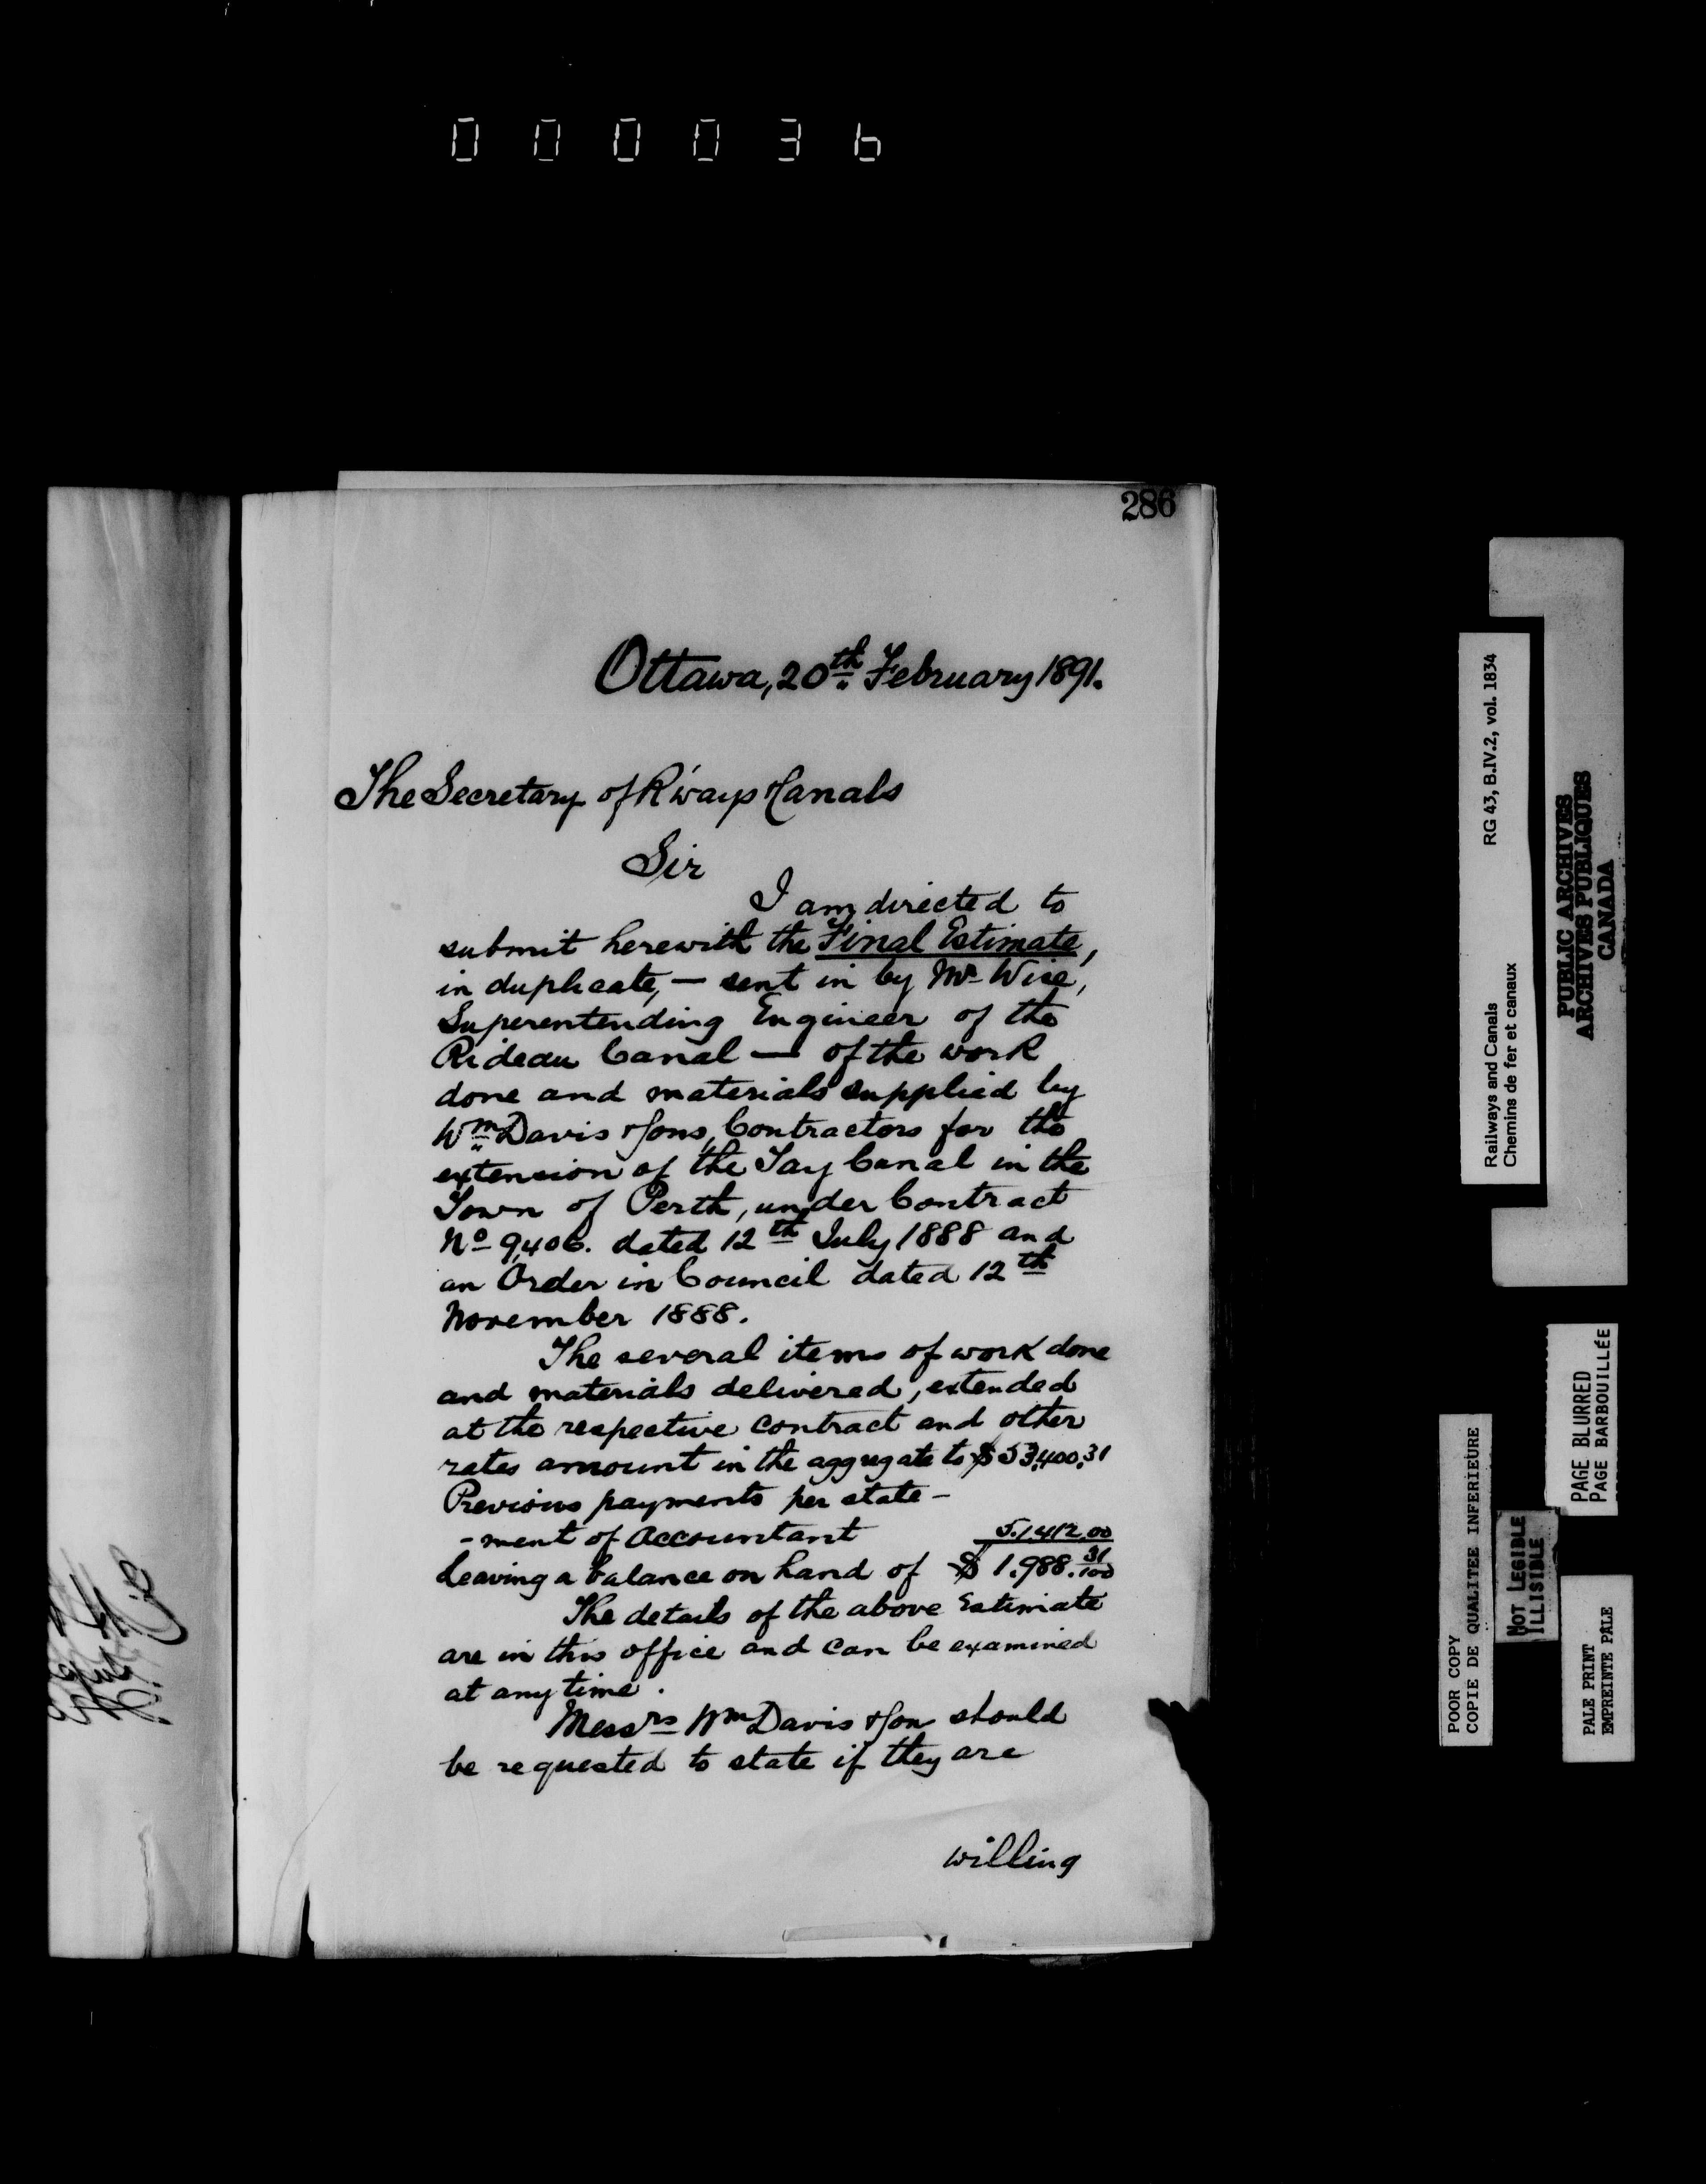 000036
286
Ottawa, 20th February 1891.
The Secretary of R'ways & Canals
Sir
I am directed to
submit herewith the Final Estimate,
in duplicate, — sent in by Mr Wise,
Superentending Engineer of the
Rideau Canal — of the work
done and materials supplied by
Wm Davis & Sons, Contractors for the
extension of the Tay Canal in the
Town of Perth, under Contract
No 9,406. dated 12th July 1888 and
an Order in Council dated 12th
November 1888.
The several items of work done
and materials delivered, extended
at the respective contract and other
rates amount in the aggregate to $53,400.31
Previous payments per state-
-ment of Accountant 51,412.00
Leaving a balance on hand of $1.988.31/100
The details of the above Estimate
are in this office and can be examined
at any time.
Messrs Wm Davis & Son should
be requested to state if they are
willing
Railways and Canals RG 43, B.IV.2, vol. 1834
Chemins de fer et canaux
PUBLIC ARCHIVES
ARCHIVES PUBLIQUES
CANADA
PAGE BLURRED
PAGE BARBOUILLÉE
POOR COPY
COPIE DE QUALITEE INFERIEURE
NOT LEGIBLE
ILLISIBLE
PALE PRINT
EMPREINTE PALE